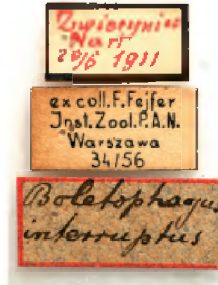 Zwierzyniec
Nart
20/6 1911
ex coll. F. Fejfer
Jnst. Zool. P.A.N.
Warszawa
34/56
Boletophagus
interruptus